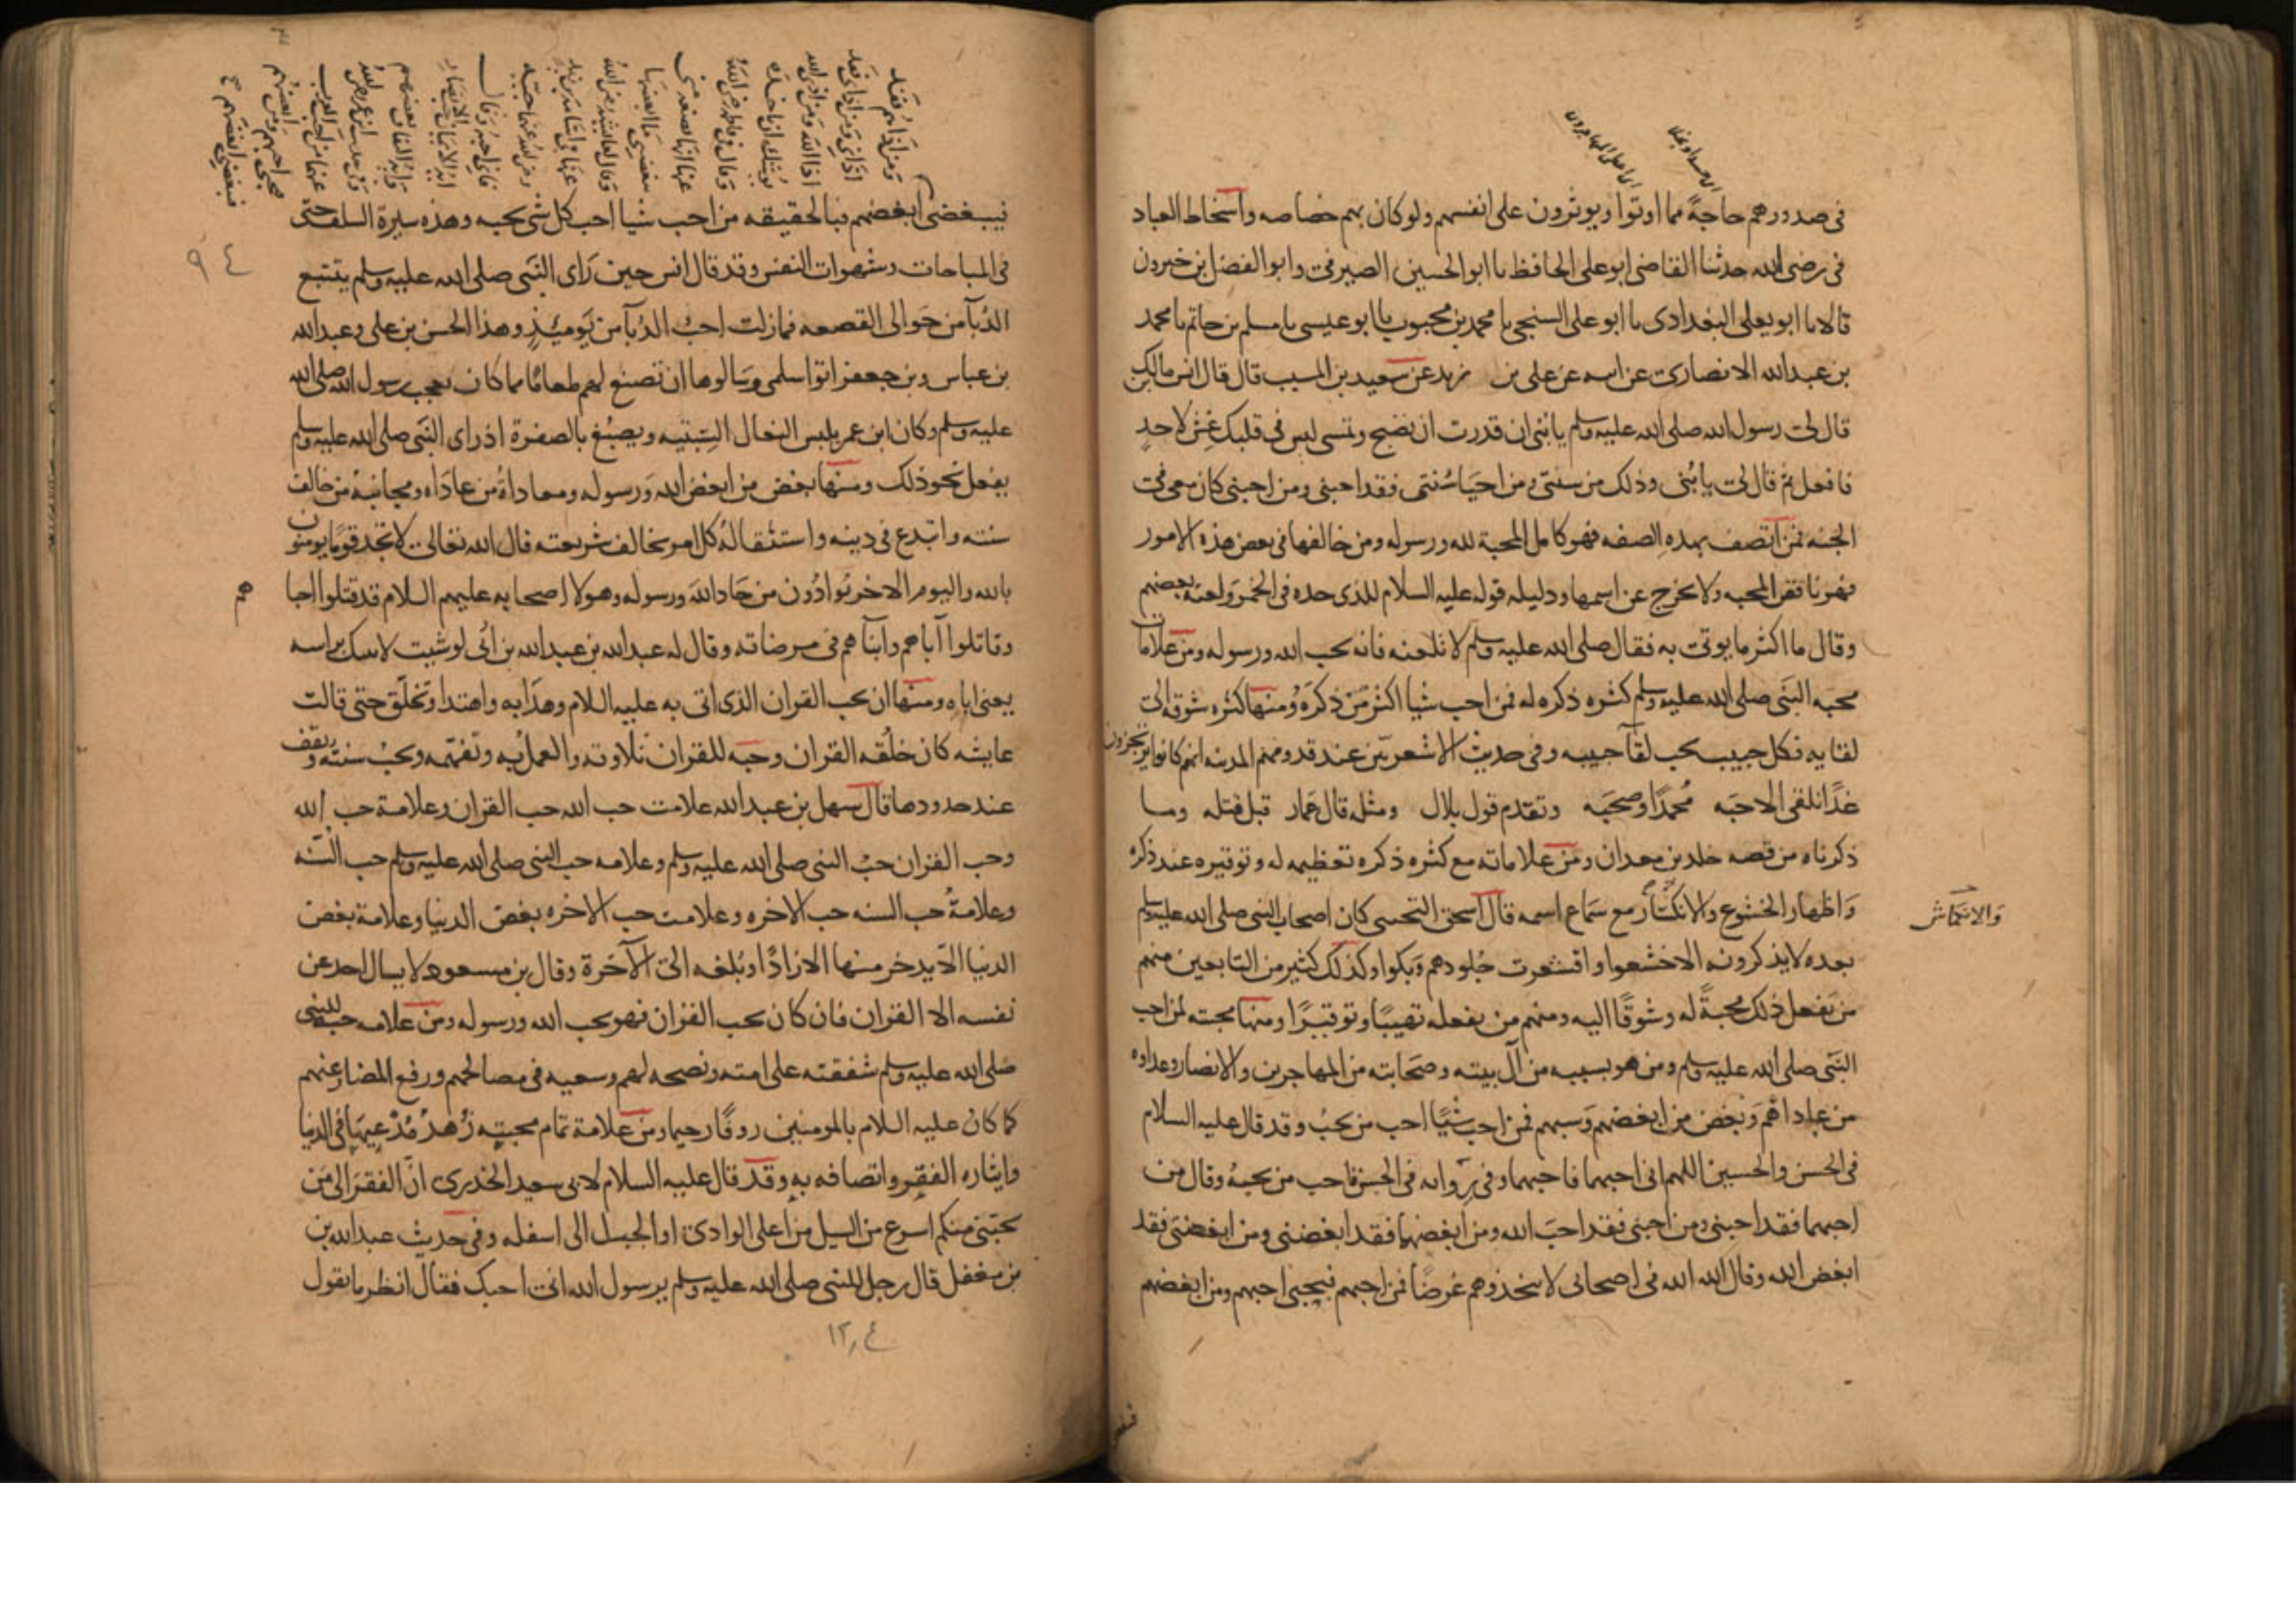 في صدورهم حاجةً مما اوتوا ويوثرون على انفسهم ولو كان بهم خصاصه واسخاط العباد
في رضى الله حدثنا القاضى ابو على الحافظ نا ابو الحسين الصيرفي وابو الفضل بن خيرون
قالا نا ابو يعلى البغدادى نا ابو على السنجي نا محمد بن محبوب نا ابو عيسى نا مسلم بن حاتم نا محمد
بن عبد الله الانصارى عن ابيه عن على بن زيد عن سعيد بن المسيب قال قال انس بن مالك
قال لي رسول الله صلى الله عليه وسلم يا بني ان قدرت ان تصبح وتمسى ليس في قلبك غش لاحدٍ
فافعل ثم قال لي يا بُنى وذلك من سنتي ومن احيَا سُنتى فقد احبنى ومن احبنى كان معى في
الجنه فمن اتصف بهذه الصفه فهو كامل المحبة لله ورسوله ومن خالفها في بعض هذه الامور
فهو ناقص المحبه ولا يخرج عن اسمها ودليله قوله عليه السلام للذى حده في الخمر ولعنه بعضهم
وقال ما اكثر ما يوتى به فقال صلى الله عليه وسلم لا تلعنه فانه يحب الله ورسوله ومن علامات
محبه النبى صلى الله عليه وسلم كثره ذكره له فمن احب شيا اكثر من ذكره ومنها كثره شوقه الى
لقايه فكل حبيب يحب لقآ حبيبه وفي حديث الاشعريين عند قدومهم المدينه انهم كانوا يرتجزون
غدًا نلقى الاحبَه مُحمدًا وصحبَه وتقدم قول بلال ومثله قال عمار قبل قتله وما
ذكرناه من قصه خلد بن معدان ومن علاماته مع كثره ذكره تعظيمه له وتوقيره عند ذكره
وَاظهار الخشوع والانكسار مع سَماع اسمه قال اسحق التجيبى كان اصحاب النبى صلى الله عليه وسلم
والانكماش
بعده لا يذكرونه الا خشعوا واقشعرت جُلودهم وبكوا وكذلك كثير من التابعين منهم
من يفعل ذلك محبةً له وشوقًا اليه ومنهم من يفعله تهيبًا وتوقيرًا ومنها محبته لمن احب
النبَى صلى الله عليه وسلم ومن هو بسببه من آل بيته وصَحابته من المهاجرين والانصار وعداوه
من عاداهم وبغض من ابغضهم وسبهم فمن احب شيًا احب من يحبُ وقد قال عليه السلام
في الحسن والحسين اللهم انى احبهما فاحبهما وفي روايه في الحسن فاحب من يحبهُ وقال من
احبهما فقد احبنى ومن احبنى فقد احبَ الله ومن ابغضهما فقد ابغضنى ومن ابغضنى فقد
ابغض الله وقال الله الله في اصحابى لا تتخذوهم غرضًا فمن احبهم فبحبى احبهم ومن ابغضهم
ومن اذاهم فقد
اذانى ومن اذانى فقد
اذا الله ومن اذى الله
يوشك ان ياخذه
وقال في فاطمه رضى الله
عنها انها بضعه منى
يغضبنى ما اغضبها
وقال لعايشه رضى الله
عنها في اسامه بن زيد
رضى الله عنهما احبيه
فانى احبه وقال
ايه الايمان حب الانصار
وايه النفاق بغضهم
وفي حديث ابن عمر رضى الله
عنهما من احب العرب
فبحبى احبهم ومن ابغضهم
فببغضى ابغضهم
فببغضى ابغضهم فبالحقيقه من احب شيا احب كل شى يحبه وهذه سيرة السلف حتى
في المباحات وشهوات النفس وقد قال انس حين رَاى النبَى صلى الله عليه وسلم يتتبع
٩٤
الدُبآ من حَوالى القصعه فمازلت احبُ الدُبآ من يَوميئذٍ وهذا الحسن بن على وعبد الله
بن عباس وبن جعفر اتوا سلمى وسَالوها ان تصنع لهم طعامًا مما كان يعجب رسول الله صلى الله
عليه وسلم وكان ابن عمر يلبس النعال السِبتيه ويصبُغ بالصفرة اذ راى النبَى صلى الله عليه وسلم
يفعل نحو ذلك ومنها بغض من ابغض الله وَرسوله ومعاداةُ من عادَاه ومجانبهُ من خالف
سنته وابتدع في دينه واستثقالهُ كل امر يخالف شريعته قال الله تعالى لا تجد قومًا يومنون
بالله واليوم الاخر يُوادُون من حَاد اللهَ ورسوله وهولا اصحابه عليهم السلام قد قتلوا احبا
هم
وقاتلوا آباهم وابنآهم في مرضاته وقال له عبد الله بن عبد الله بن ابُى لو شيت لاتيتك براسه
يعنى اباه ومنها ان يحب القران الذى اتى به عليه السلام وهدَا به واهتدا وتخلّق حتى قالت
عايشه كان خلُقه القران وحبه للقران تلاوته والعمل به وتفهّمه ويحبُ سنته ويقف
عند حدودها قال سهل بن عبد الله علامت حب الله حب القران وعلامة حب الله
وحب القران حبُ النبى صلى الله عليه وسلم وعلامه حب النبى صلى الله عليه وسلم حب السُنه
وعلامةُ حب السنه حب الاخره وعلامت حب الاخره بغض الدنيا وعلامة بغض
الدنيا الّا يدخر منها الا زادًا وبُلغه الى الآخرة وقال بن مسعود لا يسال احد عن
نفسه الا القران فان كان يحب القران فهو يحب الله ورسوله ومن علامه حبه للنبى
صَلى الله عليه وسلم شفقته على امته ونصحه لهم وسعيه في مصالحهم ورفع المضار عنهم
كما كان عليه السلام بالمومنين روفًا رحيما ومن علامة تمام محبتِه زُهدُ مُدَّعِيهَا في الدنيا
وايثاره الفقر واتصافه بهِ وقد قال عليه السلام لابى سعيد الخدرى انّ الفقرَ الى مَن
يحبّنى منكم اسرع من السيل من اعلى الوادى او الجبل الى اسفله وفى حديث عبد الله بن
بن مغفل قال رجل للنبى صلى الله عليه وسلم يرسول الله انى احبك فقال انظر ما تقول